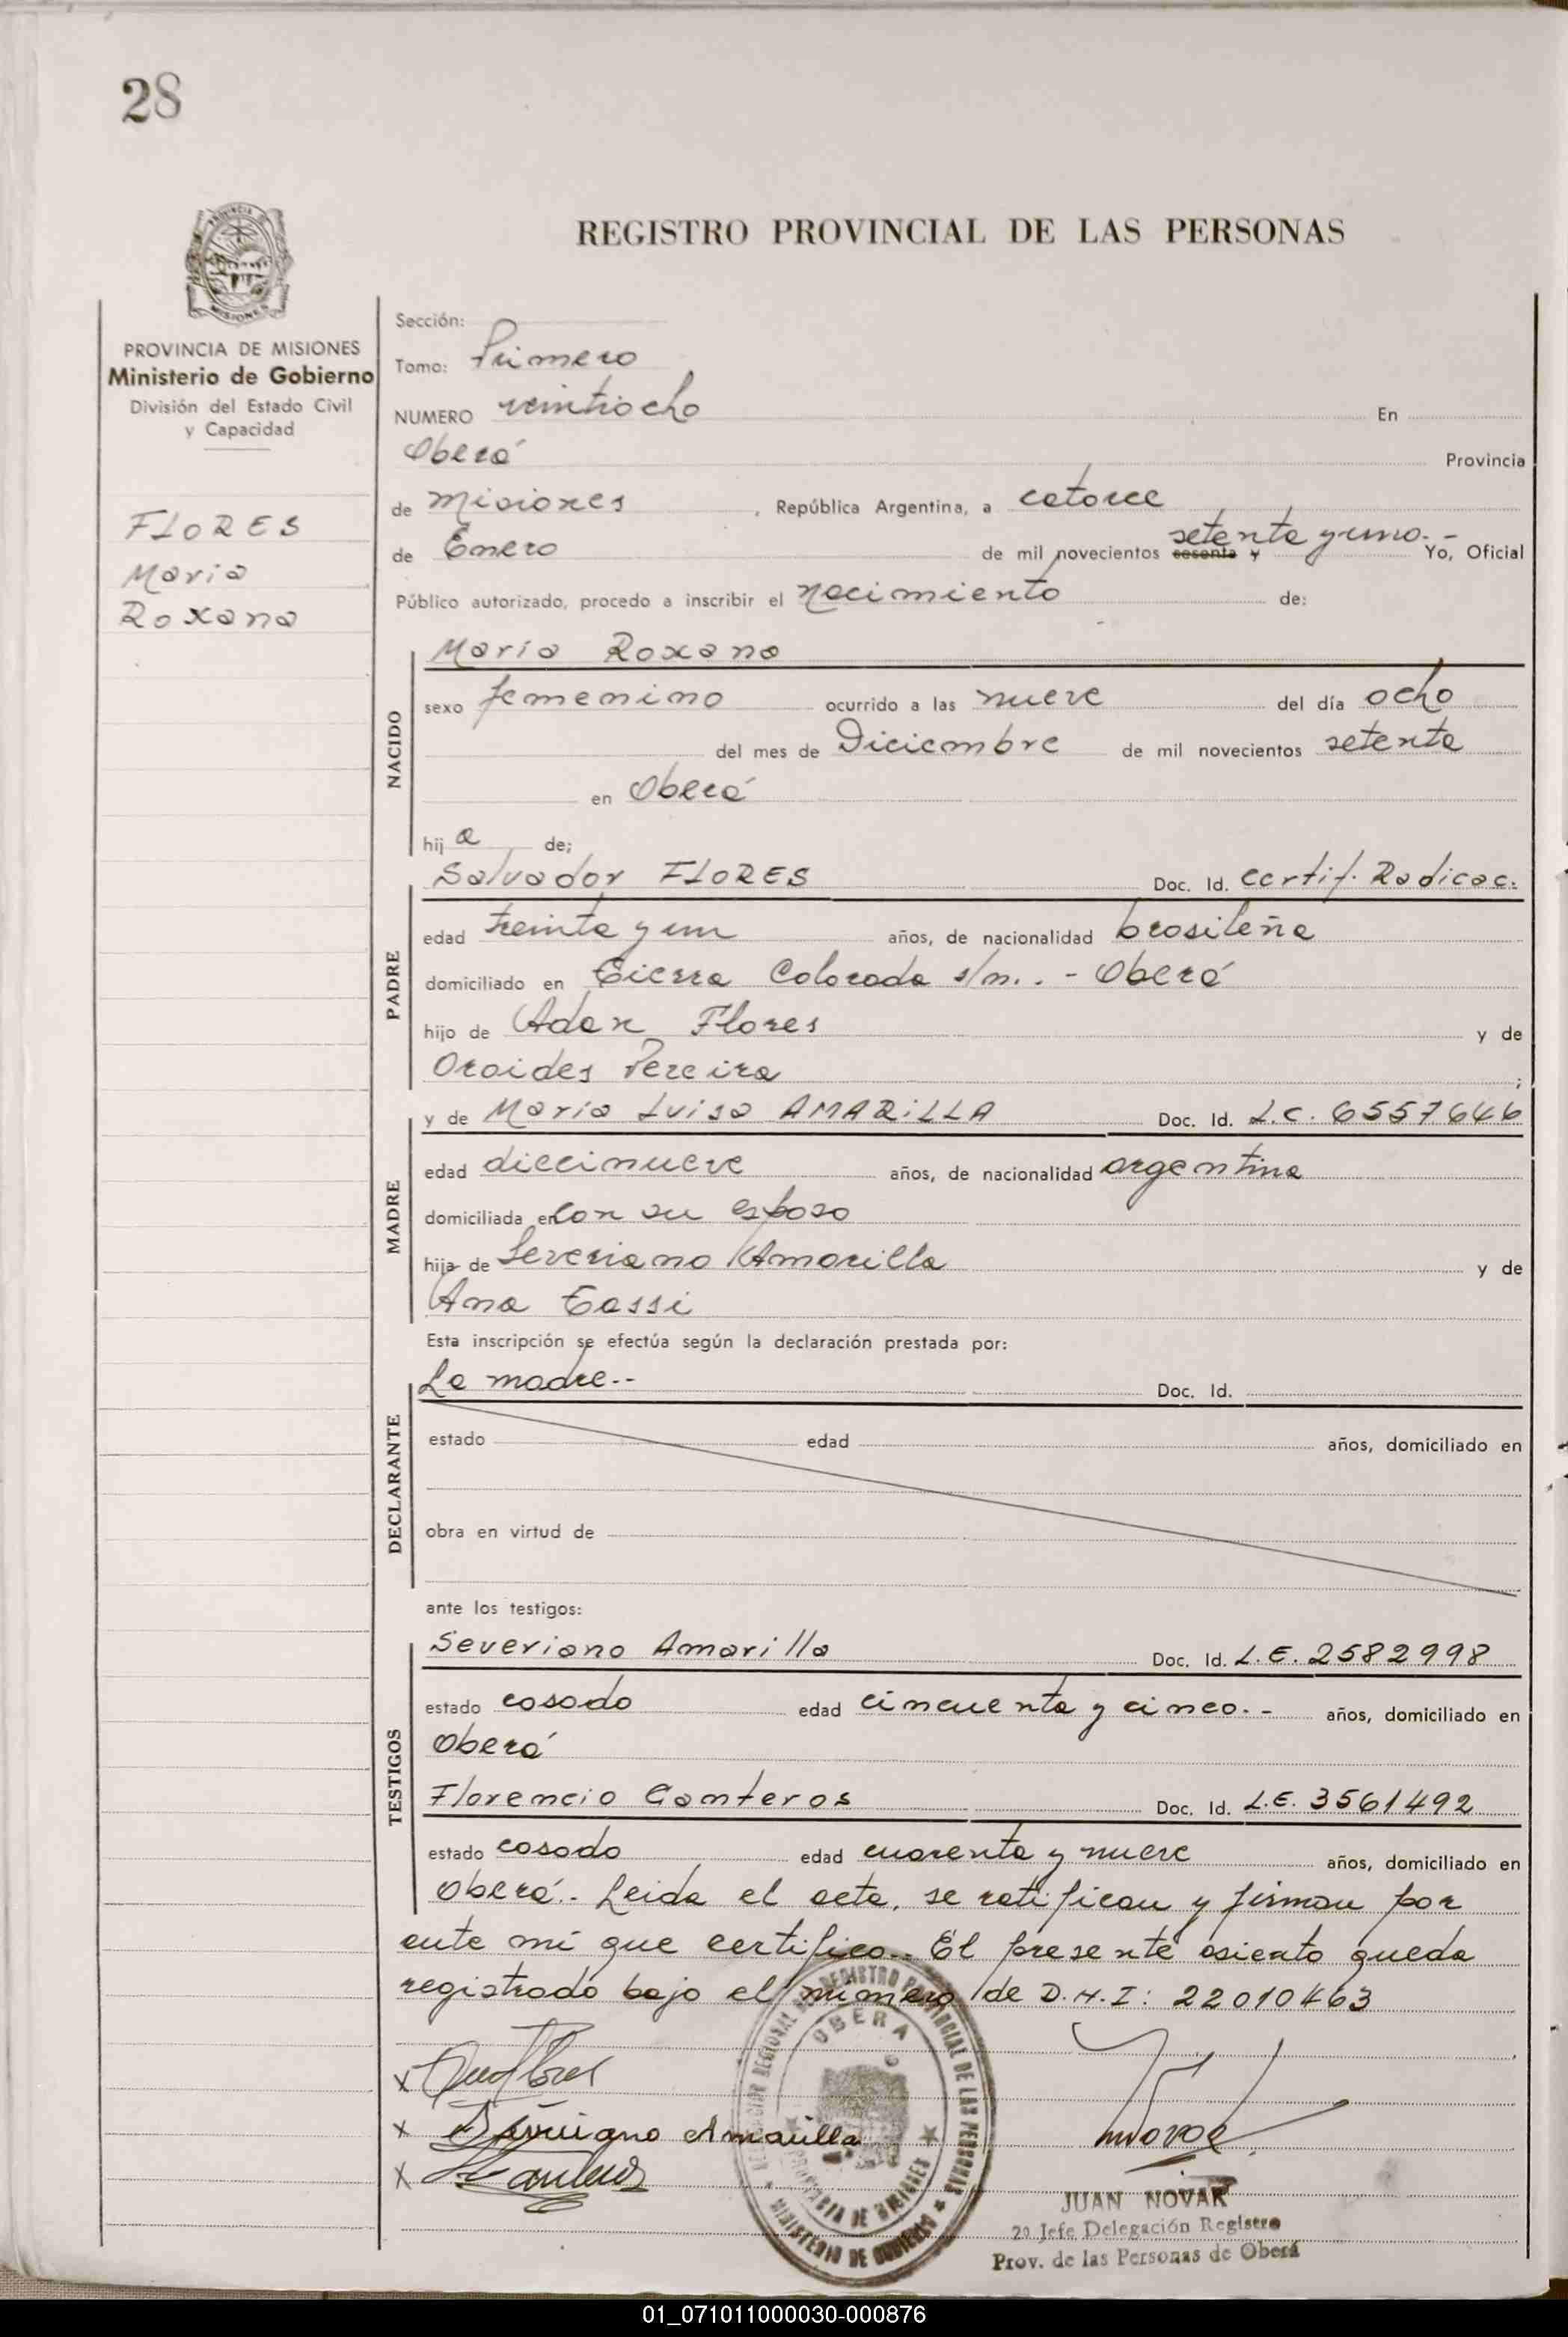 28
REGISTRO PROVINCIAL DE LAS PERSONAS
PROVINCIA DE MISIONES
Ministerio de Gobierno
División del Estado Civil
y Capacidad
FLORES
Maria
Roxana
Sección:
Tomo: Primero
NUMERO veintiocho En
Oberá Provincia
de Misiones, República Argentina, a catorce
de Enero de mil novecientos sesenta y setenta y uno.- Yo, Oficial
Público autorizado, procedo a inscribir el nacimiento de:
NACIDO
María Roxana
sexo femenino ocurrido a las nueve del día ocho
del mes de Diciembre de mil novecientos setenta
en Oberá
hija de;
PADRE
Salvador FLORES Doc. Id. Certif. Radicac.
edad treinta y un años, de nacionalidad brasileña
domiciliado en Tierra Colorada s/n. .- Oberá
hijo de Adan Flores y de
Oroides Pereira ;
MADRE
y de Maria Luisa AMARILLA Doc. Id. L.C. 6557646
edad diecinueve años, de nacionalidad argentina
domiciliada en Con su esposo
hija de Severiano Amarilla y de
Ana Tassi
Esta inscripción se efectúa según la declaración prestada por:
DECLARANTE
La madre.-- Doc. Id.
estado edad años, domiciliado en
obra en virtud de
ante los testigos:
TESTIGOS
Severiano Amarilla Doc. Id. L.E. 2582998
estado casado edad cincuenta y cinco.- años, domiciliado en
Oberá
Florencio Gamteros Doc. Id. L.E. 3561492
estado casado edad cuarenta y nueve años, domiciliado en
Oberá.- Leida el acta, se ratifican y firman por
ante mí que certifico.- El presente asiento queda
registrado bajo el número de D.N.I: 22010463
DELEGACION REGIONAL DE REGISTRO PROVINCIAL DE LAS PERSONAS
OBERA
PROVINCIA DE MISIONES
MINISTERIO DE GOBIERNO
x
x Amarilla
x
JUAN NOVAK
2º Jefe Delegación Registro
Prov. de las Personas de Oberá
01_071011000030-000876